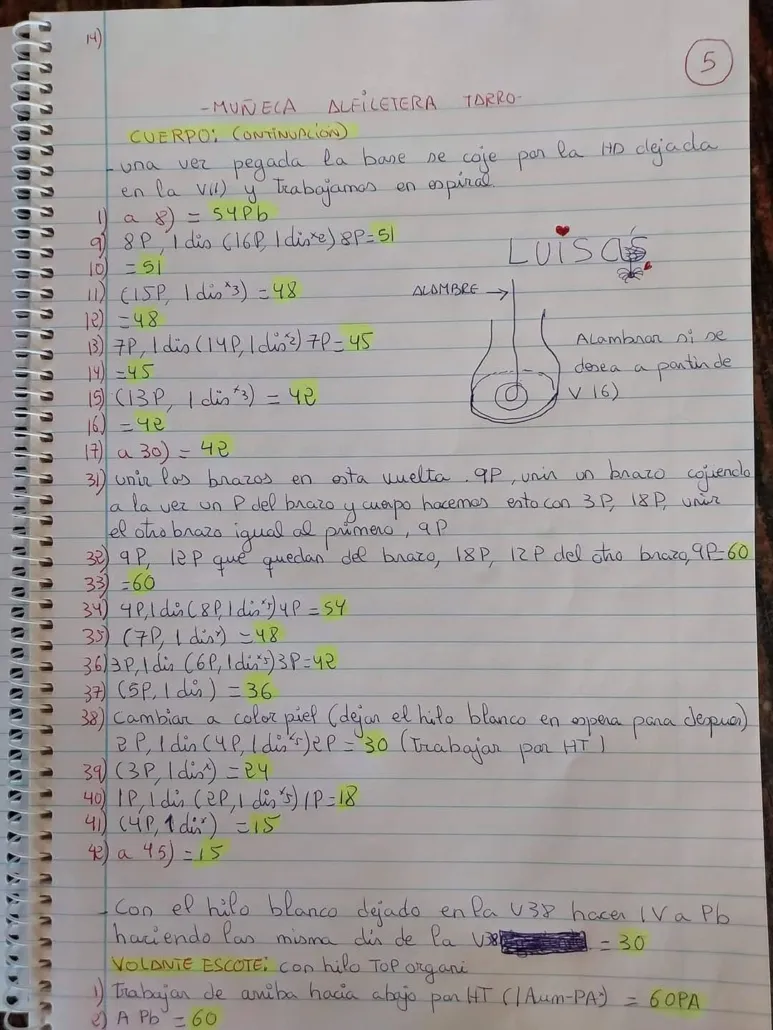 14)
5
-MUÑECA ALFILETERA TARRO-
CUERPO: (CONTINUACIÓN)
- una vez pegada la base se coje por la HD dejada
en la V11) y trabajamos en espiral.
1) a 8) = 54Pb
9) 8P, 1dis (16P, 1disˣ2) 8P=51
10) =51
11) (15P, 1disˣ3) =48
12) =48
13) 7P, 1dis (14P, 1disˣ2) 7P=45
14) =45
15) (13P, 1disˣ3) = 42
16) =42
17) a 30) = 42
LUISCAS
ALAMBRE →
Alambrar si se
desea a partir de
V 16)
31) unir los brazos en esta vuelta. 9P, unir un brazo cojiendo
a la vez un P del brazo y cuerpo hacemos esto con 3P, 18P, unir
el otro brazo igual al primero, 9P
32) 9P, 12P que quedan del brazo, 18P, 12P del otro brazo, 9P=60
33) =60
34) 4P, 1dis (8P, 1disˣ5) 4P =54
35) (7P, 1disˣ) =48
36) 3P, 1dis (6P, 1disˣ5) 3P=42
37) (5P, 1dis ) = 36
38) Cambiar a color piel (dejar el hilo blanco en espera para despues)
2P, 1dis (4P, 1disˣ5) 2P = 30 (Trabajar por HT)
39) (3P, 1disˣ) =24
40) 1P, 1dis (2P, 1disˣ5) 1P=18
41) (4P, 1disˣ) =15
42) a 45) =15
- Con el hilo blanco dejado en la V38 hacer 1V a Pb
haciendo las misma dis de la V38 = 30
VOLANTE ESCOTE: con hilo TOP organi
1) Trabajar de arriba hacia abajo por HT (1Aum-PA) = 60PA
2) A Pb = 60